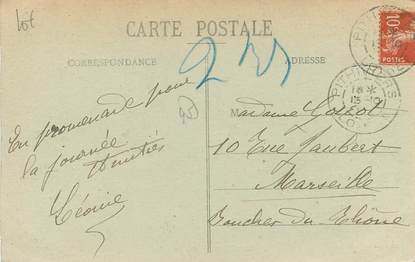 lot
CARTE POSTALE
CORRESPONDANCE
ADRESSE
10
POSTES
PITHIVIERS
18 *
15-10
En promenade pour
la journée
Amitiés
Léonie
Madame
10 Rue Jaubert
Marseille
Bouches du Rhône